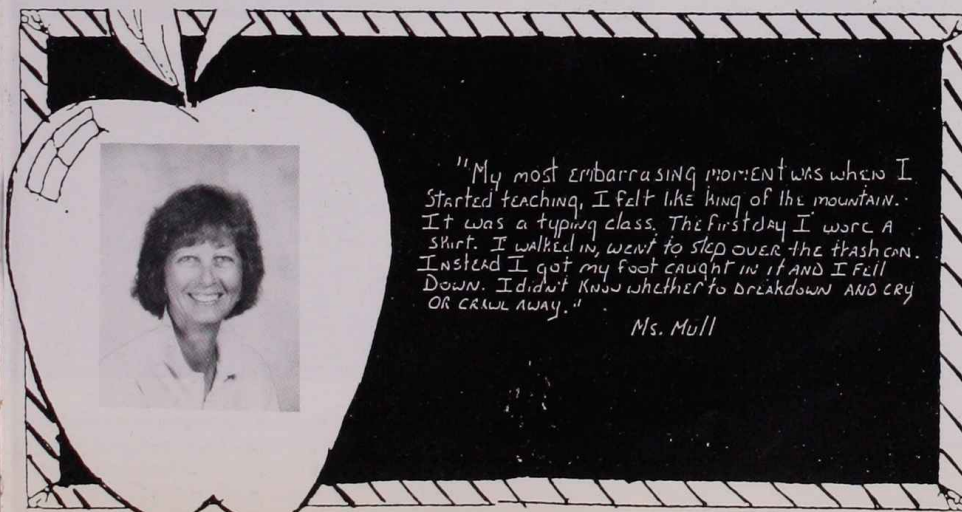 "My most embarrasing moment was when I
started teaching, I felt like king of the mountain.
It was a typing class. The first day I wore a
skirt. I walked in, went to step over the trash can.
Instead I got my foot caught in it and I fell
down. I didn't know whether to breakdown and cry
or crawl away."
Ms. Mull